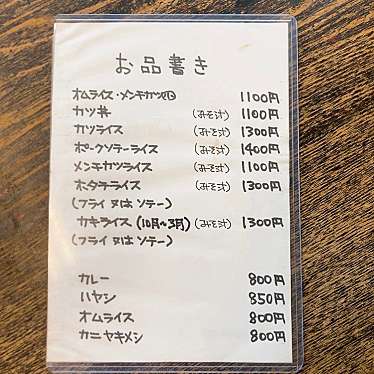 お品書き
オムライス・メンチカツ 1100円
カツ丼 (みそ汁) 1100円
カツライス (みそ汁) 1300円
ポークソテーライス (みそ汁) 1400円
メンチカツライス (みそ汁) 1100円
ホタテライス (みそ汁) 1300円
(フライ 又は ソテー)
カキライス (10月～3月) (みそ汁) 1300円
(フライ 又は ソテー)
カレー 800円
ハヤシ 850円
オムライス 800円
カニヤキメシ 800円